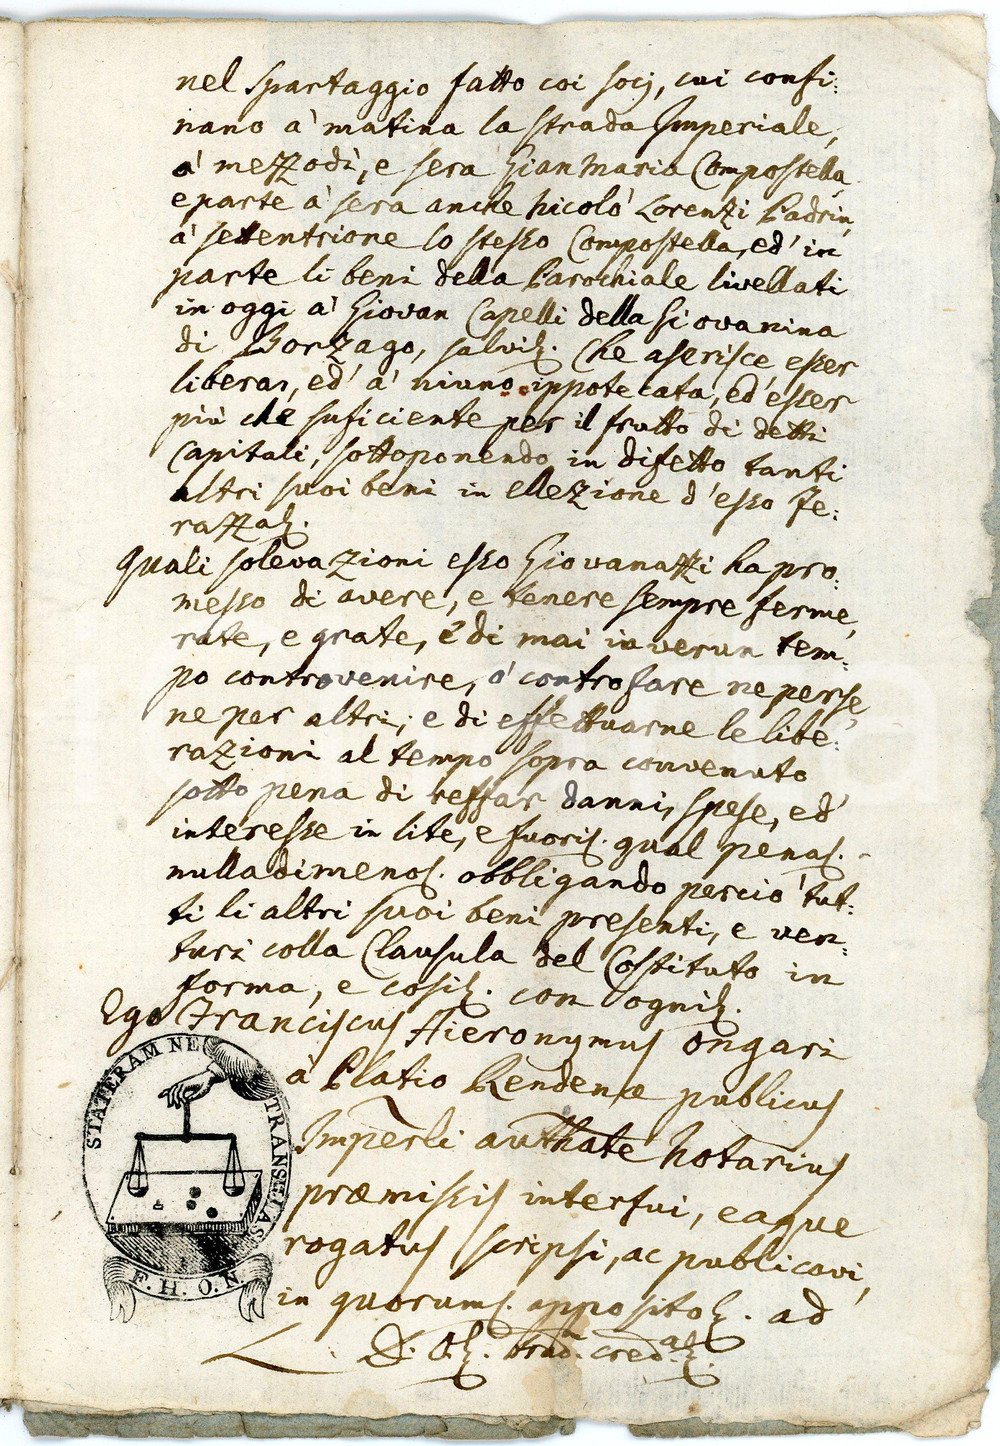 nel spartaggio fatto coi socj, cui confi:
nano à matina la strada Imperiale,
à mezzodì, e sera Gian Maria Compostella,
e parte à sera anche Nicolò Lorenzi Badrin,
à settentrione lo stesso Compostella, ed' in
parte li beni della Parochiale livellati
in oggi à Giovan Capelli della Giovanina
di Borzago, salviz. Che aserisce esser
libera, ed' à niuno ippotecata, ed' esser
più che suficiente per il frutto di detti
Capitali, sottoponendo in difetto tanti
altri suoi beni in ellezione d'esso Fe:
razzaz.
Quali solevazioni esso Giovanazzi ha pro:
messo di avere, e tenere sempre ferme,
rate, e grate, è di mai in verun tem:
po controvenire, ò contrafare ne per se,
ne per altri; e di effettuarne le libe:
razioni al tempo sopra convenuto
sotto pena di reffar danni, spese, ed'
interesse in lite, e fuoriz. qual penaz.
nulladimenoz. obbligando perciò tut:
ti li altri suoi beni presenti, e ven:
turi colla Clausula del Costituto in
forma, e cosiz. con ogniz.
Ego Franciscus Hieronymus Ongari
à Platio Rendenæ publicus
Imperli authate Notarius
præmissis interfui, eaque
rogatus scripsi, ac publicavi,
in quorumz. appositoz. ad
STATERAM NE TRANSILIAS
F. H. O. N.